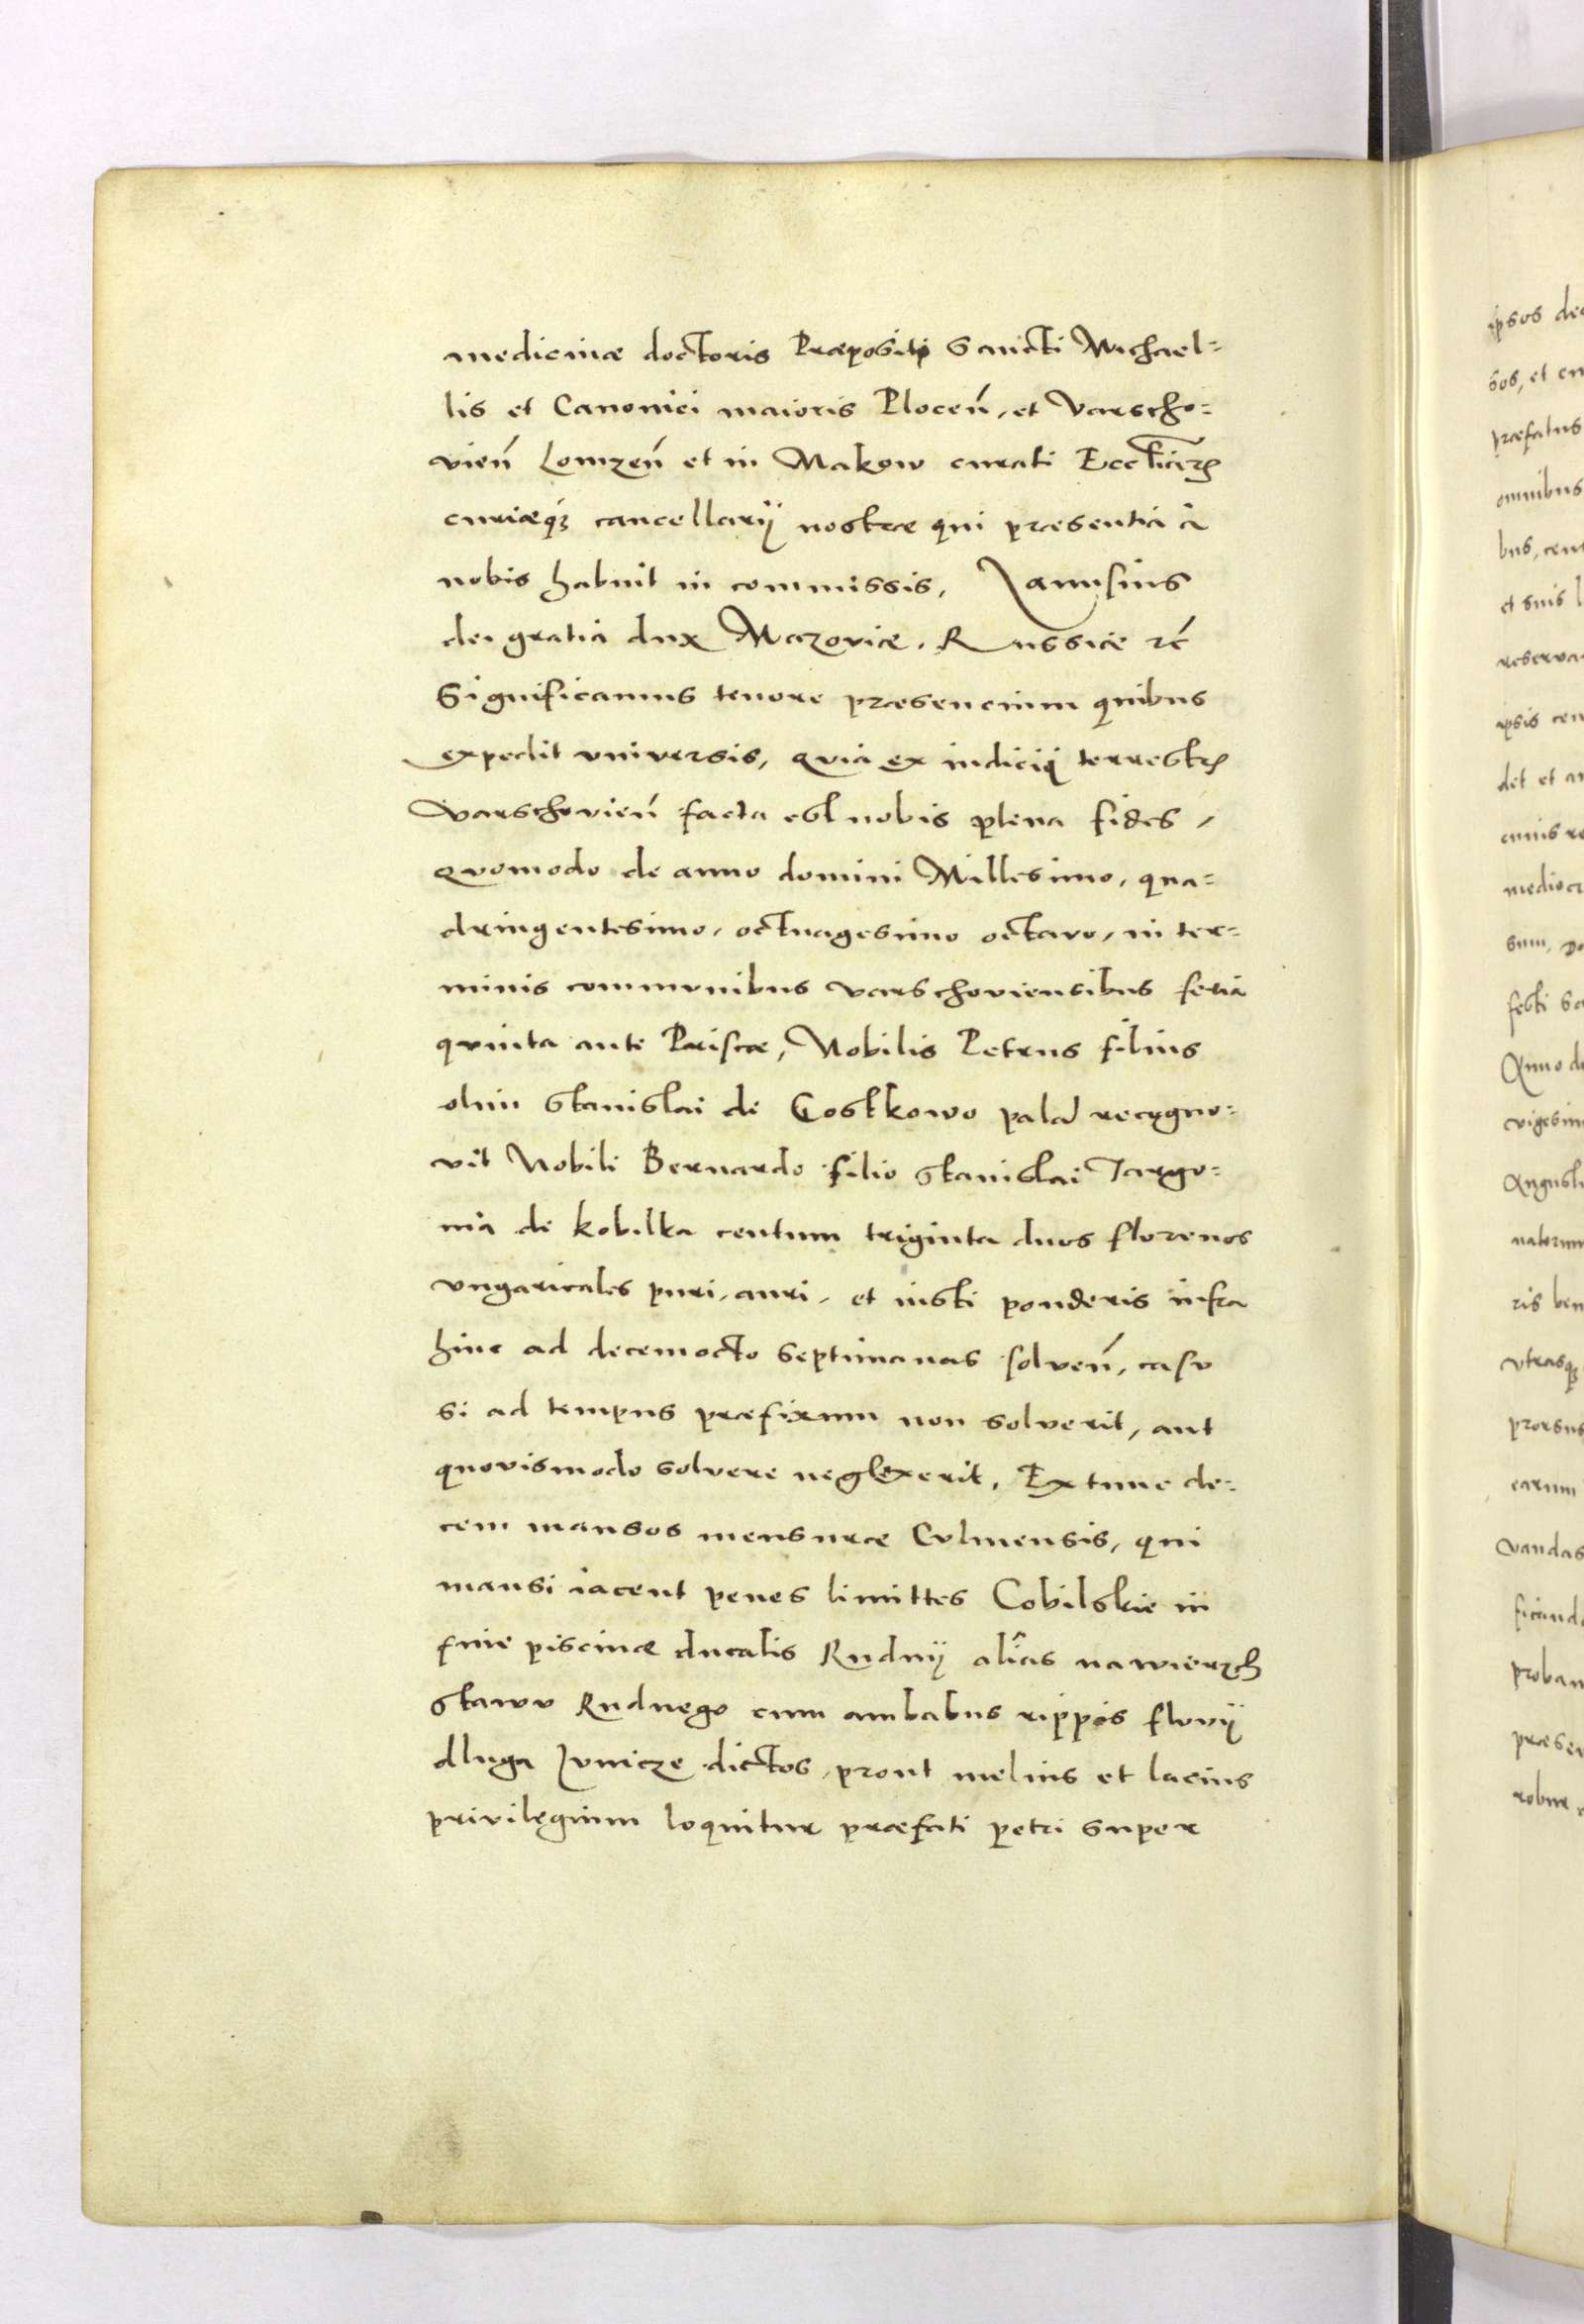 medicinæ doctoris Præpositi Sancti Michael=
lis et Canonici maioris Plocen̄, et Varscho=
vien̄ Lomzen̄ et in Makow curati Eccl̄iarꝝ
curiæqꝫ cancellarij nostræ qui præsentia à
nobis habuit in commissis, Janusius
dei gratia dux Mazoviæ, Russiæ ꝛc̄
Significamus tenore præsencium quibus
expedit universis, qvia ex iudicijs terrestrꝝ
Varschovien̄ facta est nobis plena fides,
qvomodo de anno domini Millesimo, qua=
dringentesimo, octuagesimo octavo, in ter=
minis commvnibus varschoviensibus feria
qvinta ante Priscæ, Nobilis Petrus filius
olim Stanislai de Gostkowo palad recogno=
vit Nobili Bernardo filio Stanislai Targo=
nia de Kobilka centum triginta duos florenos
vngaricales puri, auri, et iusti ponderis infra
hinc ad decemocto septimanas solven̄, casv
si ad tempus præfixum non solverit, aut
quovismodo solvere neglexerit, Extunc de=
cem mansos mensuræ Cvlmensis, qui
mansi iacent penes limittes Cobilskie in
fine piscinæ ducalis Rudnij alias nawierzch
stawv Rudnego cum ambabus rippis flvvij
dluga Jvnicze dictos, prout melius et lacius
privilegium loquitur præfati petri super
ipsos
sos, et
præfatus
omnibus
bus,
et suis
ipsis
det et
sum,
festi
Anno
ris
vtrasqꝫ
prorsus
earum
robur